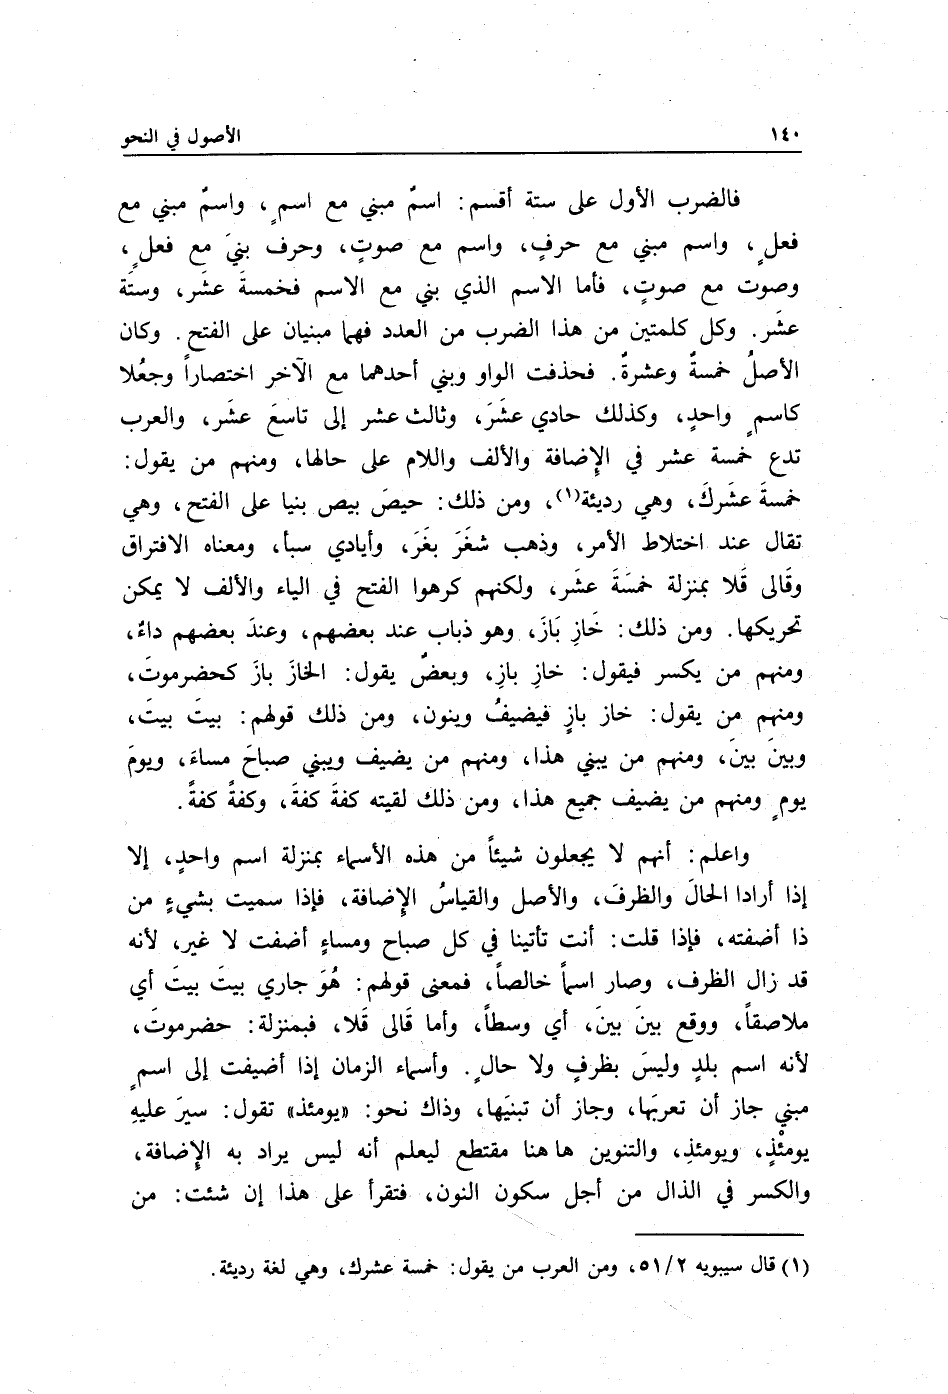 ١٤٠ الأصول في النحو
فالضرب الأول على ستة أقسم: اسمٌ مبني مع اسمٍ، واسمٌ مبني مع
فعلٍ، واسم مبني مع حرفٍ، واسم مع صوتٍ، وحرف بنيَ مع فعلٍ،
وصوت مع صوتٍ، فأما الاسم الذي بني مع الاسم فخمسةَ عشَر، وستَة
عشَر. وكل كلمتين من هذا الضرب من العدد فهما مبنيان على الفتح. وكان
الأصلُ خمسةٌ وعشرةٌ. فحذفت الواو وبني أحدهما مع الآخر اختصاراً وجعُلا
كاسمٍ واحدٍ، وكذلك حادي عشَرَ، وثالث عشر إلى تاسعَ عشَر، والعرب
تدع خمسة عشر في الإضافة والألف واللام على حالها، ومنهم من يقول:
خمسةَ عشَركَ، وهي رديئة(١)، ومن ذلك: حيصَ بيص بنيا على الفتح، وهي
تقال عند اختلاط الأمر، وذهب شغَرَ بغَرَ، وأيادي سبأ، ومعناه الافتراق
وقَالى قَلا بمنزلة خمسَةَ عشَر، ولكنهم كرهوا الفتح في الياء والألف لا يمكن
تحريكها. ومن ذلك: خَازِ بَازَ، وهو ذباب عند بعضهم، وعندَ بعضهم داءٌ،
ومنهم من يكسر فيقول: خازِ بازِ، وبعضٌ يقول: الخازَ بازَ كحضرموتَ،
ومنهم من يقول: خاز بازٍ فيضيفُ وينون، ومن ذلك قولهم: بيتَ بيتَ،
وبينَ بينَ، ومنهم من يبني هذا، ومنهم من يضيف ويبني صباحَ مساءَ، ويومَ
يومٍ ومنهم من يضيف جميع هذا، ومن ذلك لقيته كفةَ كفةَ، وكفةً كفةً.
واعلم: أنهم لا يجعلون شيئاً من هذه الأسماء بمنزلة اسم واحدٍ، إلا
إذا أرادا الحالَ والظرفَ، والأصل والقياسُ الإضافة، فإذا سميت بشيءٍ من
ذا أضفته، فإذا قلت: أنت تأتينا في كل صباح ومساءٍ أضفت لا غير، لأنه
قد زال الظرف، وصار اسماً خالصاً، فمعنى قولهم: هُوَ جاري بيتَ بيتَ أي
ملاصقاً، ووقع بينَ بينَ، أي وسطاً، وأما قَالى قَلا، فبمنزلة: حضرموتَ،
لأنه اسم بلدٍ وليسَ بظرفٍ ولا حالٍ. وأسماء الزمان إذا أضيفت إلى اسمٍ
مبني جاز أن تعربَها، وجاز أن تبنيَها، وذاك نحو: «يومئذ» تقول: سيرَ عليهِ
يومئْذٍ، ويومئذِ، والتنوين ها هنا مقتطع ليعلم أنه ليس يراد به الإضافة،
والكسر في الذال من أجل سكون النون، فتقرأ على هذا إن شئت: من
(١) قال سيبويه ٥١/٢، ومن العرب من يقول: خمسة عشرك، وهي لغة رديئة.